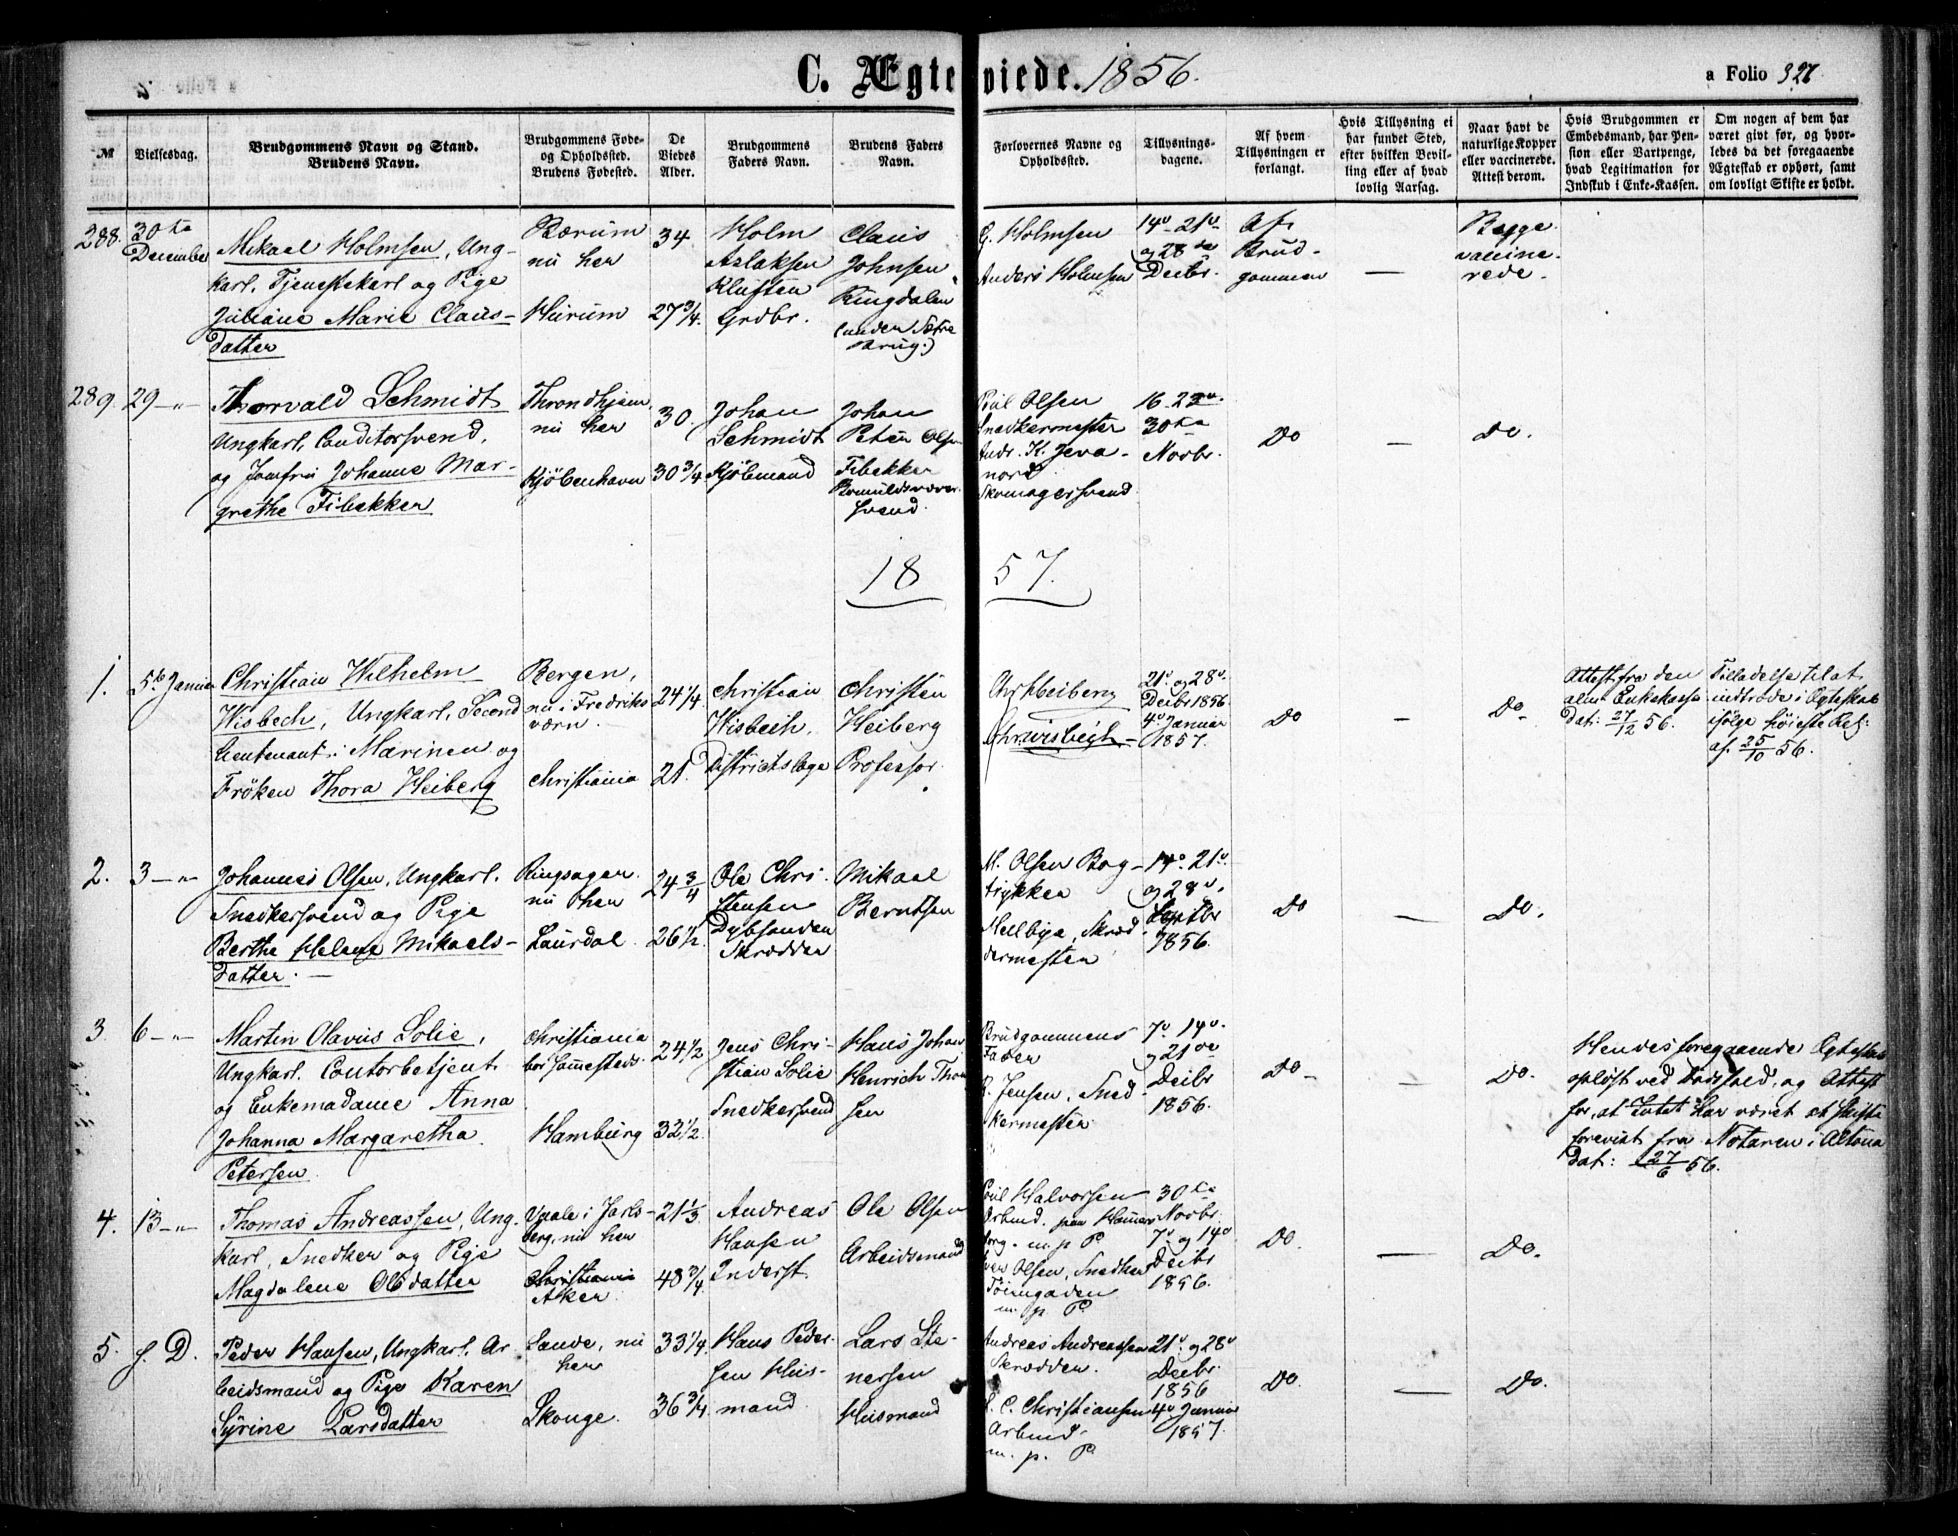 C. Ægteviede. 1856.
a Folio 327
№
Vielsesdag.
Brudgommens Navn og Stand.
Brudens Navn.
Brudgommens Føde-
og Opholdssted.
Brudens Fødested.
De
Viedes
Alder.
Brudgommens
Faders Navn.
Brudens Faders
Navn.
Forlovernes Navne og
Opholdssted.
Tillysnings-
dagene.
Af hvem
Tillysningen er
forlangt.
Hvis Tillysning ei
har fundet Sted,
efter hvilken Bevil-
ling eller af hvad
lovlig Aarsag.
Naar havt de
naturlige Kopper
eller vaccinerede.
Attest derom.
Hvis Brudgommen er
Embedsmand, har Pen-
sion eller Vartpenge,
hvad Legitimation for
Indskud i Enke-Kassen.
Om nogen af dem har
været givt før, og hvor-
ledes da det foregaaende
Ægteskab er ophørt, samt
om lovligt Skifte er holdt.
288.
30te
December
Mikael Holmsen, Ung-
karl, Tjenestekarl og Pige
Juliane Marie Claus-
datter
Bærum
nu her
Hurum
34
27 3/4.
Holm
Aslaksen
Kluften
Grdbr.
Claus
Johnsen
Ringdalen
(under Sætre
Brug.)
G. Holmsen
Anders Holmsen
14o 21o
og 28de
Decbr.
Af
Brud-
gommen
—
Begge
vaccine-
rede.
289.
29 - "
Thorvald Schmidt
Ungkarl, Conditorsvend,
og Jomfru Johanne Mar-
grethe Fibekker
Throndhjem,
nu her
Kjøbenhavn
30.
30 3/4
Johan
Schmidt
Kjøbmand
Johan
Peter Olsen
Fibekker
Bomuldsvæver-
svend.
Poul Olsen
Snedkermester
Andr. K. Jeva-
nord
Skomagersvend
16 - 23o
30te
Novbr.
Do
—
Do.
18 57.
1.
5te Januar
Christian Wilhelm
Wisbech, Ungkarl, Second
lieutenant i Marinen og
Frøken Thora Heiberg
Bergen,
nu i Fredriks
værn.
Christiania
24 1/4
21.
Christian
Wisbech,
Districtslæge
Christen
Heiberg
Professor.
Chr Heiberg
Chr Wisbech
21o og 28o
Decbr 1856
4o Januar
1857.
Do
—
Do
Attest fra den
alm Enkekasse
Dat: 27/12 56.
Tilladelse til at
indtræde i Ægteskab
ifølge høieste Res:
af 25/10 56.
2.
3 - "
Johannes Olsen, Ungkarl.
Snedkersvend og Pige
Berthe Helene Mikaels-
datter. —
Ringsager.
nu her
Laurdal.
24 3/4
26 1/2.
Ole Chri-
stensen
Dybsanden
Skrædder
Mikael
Berntsen
M. Olsen Bog-
trykker
Mellbye, Skræd-
dermester
14o 21o.
og 28o.
Septbr
1856.
Do
—
Do.
3.
6 - "
Martin Olavus Solie,
Ungkarl. Contorbetjent.
og Enkemadame Anna
Johanna Margaretha
Petersen.
Christiania
bor sammesteds.
Hamburg
24 1/2
32 1/2.
Jens Chri-
stian Solie
Snedkersvend
Hans Johan
Henrich Thom
sen
Brudgommens
Fader
R. Jensen, Sned-
kermester
7o 14o.
og 21de
Decbr
1856.
Do -
—
Do.
Hendes foregaaende Ægteskab
opløst ved Dødsfald, og Attest
for, at Intet har været at skifte
forevist fra Notaren i Altona
Dat: 27/6 56.
4.
13 - "
Thomas Andreassen, Ung-
karl, Snedker og Pige
Magdalene Olsdatter
Vaale i Jarls-
berg, nu her
Christiania
Aker
21 1/3
48 3/4
Andreas
Hansen
Inderst.
Ole Olsen
Arbeidsmand
Poul Halvorsen
Arbmd. paa Hamers
borg - m. p. P.
Olsen, Snedker
Tøiengaden
m. p. P.
30te
Novbr.
7o og 14o
Decbr
1856.
Do.
—
Do.
5.
s. D.
Peder Hansen, Ungkarl. Ar-
beidsmand og Pige Karen
Syrine Larsdatter
Sande, nu
her
Skouge.
33 1/4
36 3/4
Hans Peder-
sen Huus-
mand.
Lars Ste-
nersen
Husmand
Andreas Andreassen
Skrædder.
C. Christiansen
Arbmd.
m. p. P.
21o og 28o
Decbr.
1856
4o Januar
1857.
Do.
—
Do.